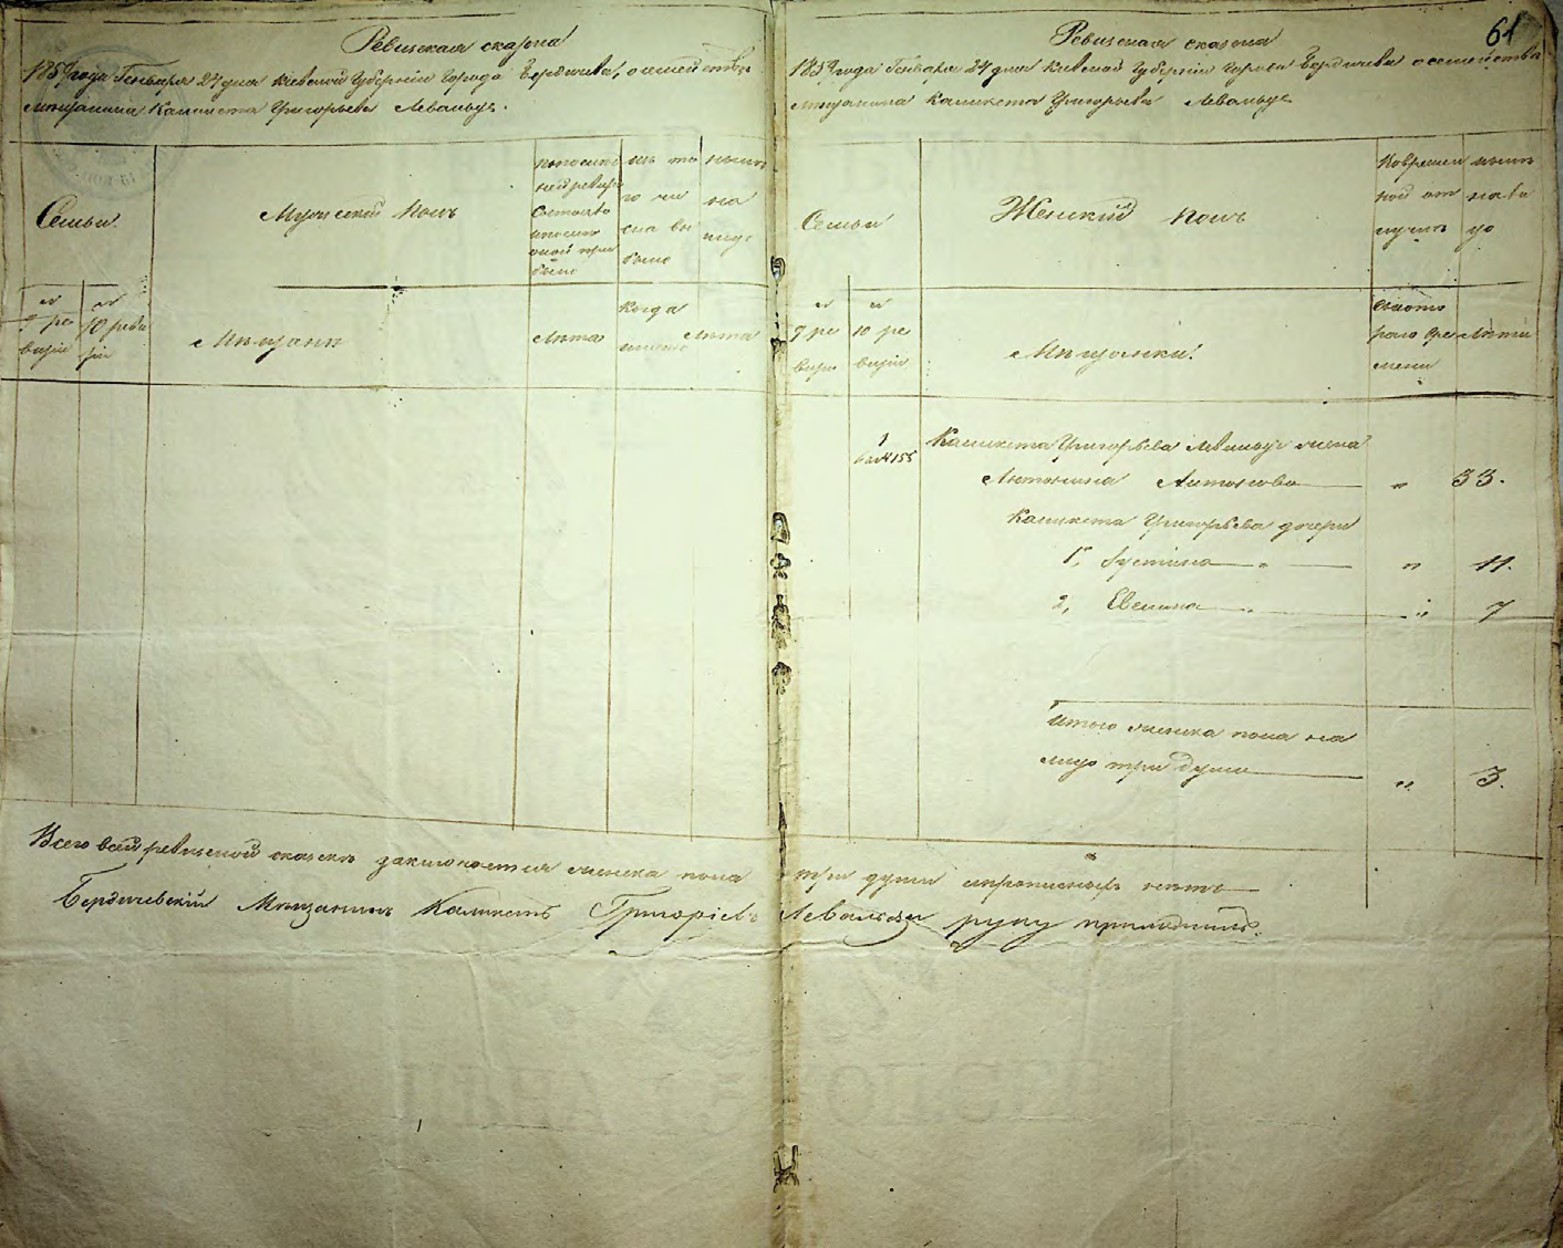 Ревизская сказка
185 года Генваря 24 дня Киевской Губернии Города Бердичева, о семействе
мещанина Каликста Григорьева
Семьи
Мужеский полъ
по послед
ней ревизіи
состояло
и после
оной при
было
изъ то
го чи
сла вы
было
нынѣ
на
лицо
9 ре
визіи
10 реви
зіи
Мещане
Лѣта
когда
именно
Лѣта
61
Ревизская сказка
185 года Генваря 24 дня Киевской Губернии Города Бердичева о семействе
мещанина Каликста Григорьева
Семьи
Женский полъ
Во времен
ной от
лучке
нынѣ
на ли
цо
9 ре
визіи
10 ре
визіи
Мещанки.
Съ кото
раго вре
мени
Лѣта
1
Каликста Григорьева жена
Антонина Антонова " 33.
Каликста Григорьева дочери
1, Юстина " 11.
2, Евелина " 7
Итого женска пола на
лицо три души " 3.
Всего въ сей ревизской сказке заключается женска пола три души прописныхъ нетъ
Бердичевскій Мещанинъ Каликстъ Григоріевъ руку приложилъ.